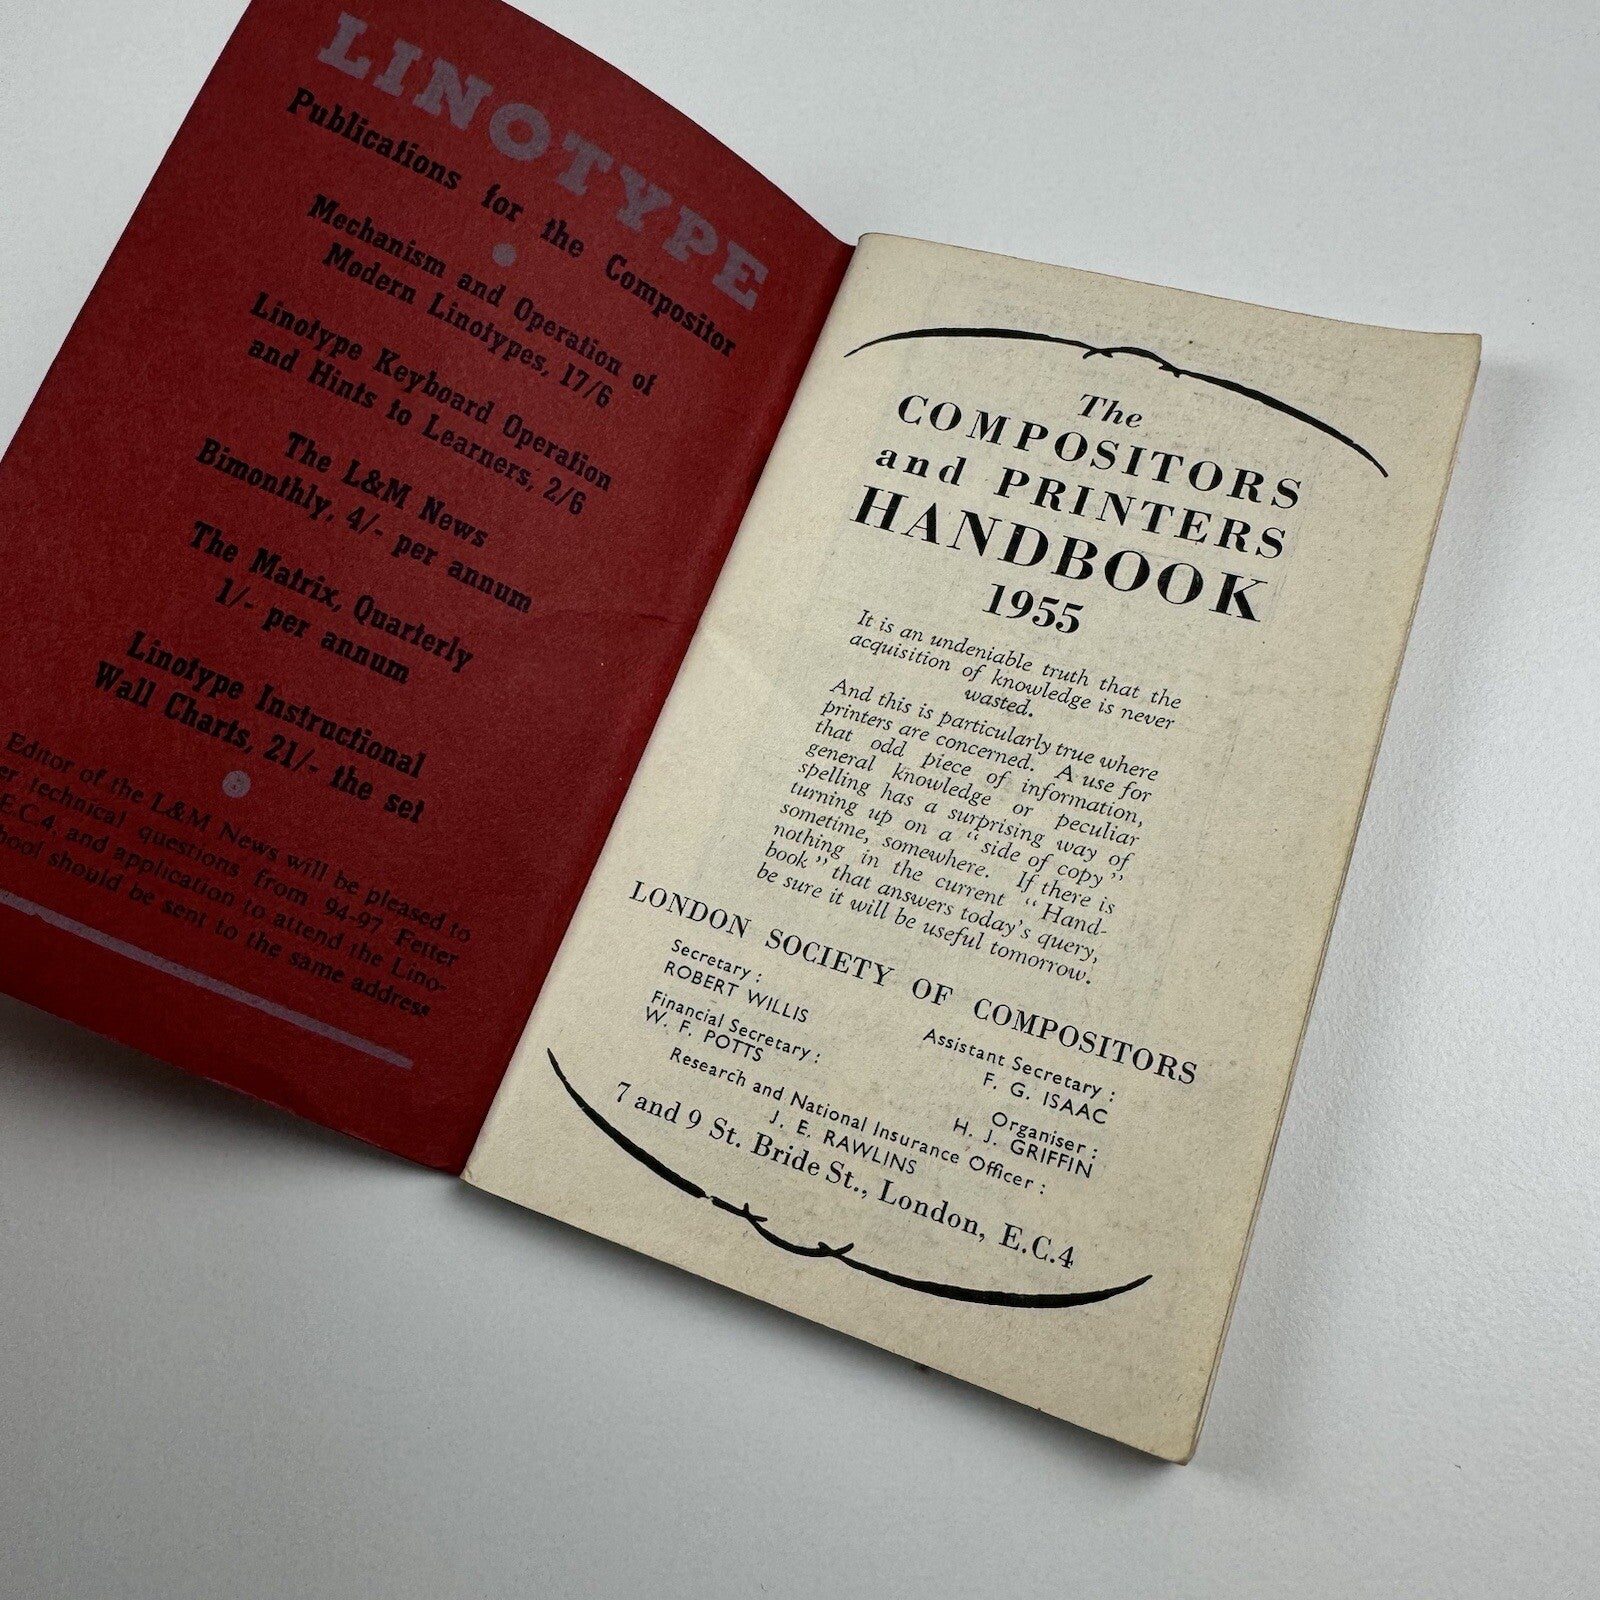 LINOTYPE
Publications for the Compositor
Mechanism and Operation of
Modern Linotypes, 17/6
Linotype Keyboard Operation
and Hints to Learners, 2/6
The L&M News
Bimonthly, 4/- per annum
The Matrix, Quarterly
1/- per annum
Linotype Instructional
Wall Charts, 21/- the set
Editor of the L&M News will be pleased to
technical questions from 94-97 Fetter
E.C.4, and application to attend the Lino-
should be sent to the same address
The
COMPOSITORS
and PRINTERS
HANDBOOK
1955
It is an undeniable truth that the
acquisition of knowledge is never
wasted.
And this is particularly true where
printers are concerned. A use for
that odd piece of information,
general knowledge or peculiar
spelling has a surprising way of
turning up on a "side of copy"
sometime, somewhere. If there is
nothing in the current "Hand-
book" that answers today's query,
be sure it will be useful tomorrow.
LONDON SOCIETY OF COMPOSITORS
Secretary :
ROBERT WILLIS
Assistant Secretary :
F. G. ISAAC
Financial Secretary :
W. F. POTTS
Organiser :
H. J. GRIFFIN
Research and National Insurance Officer :
J. E. RAWLINS
7 and 9 St. Bride St., London, E.C.4